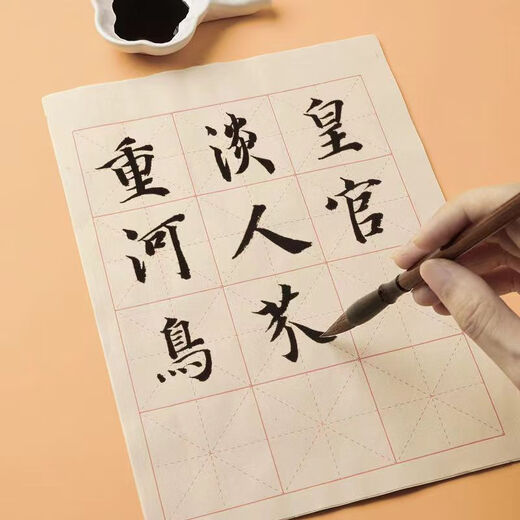 重淡皇
河人官
鳥芥